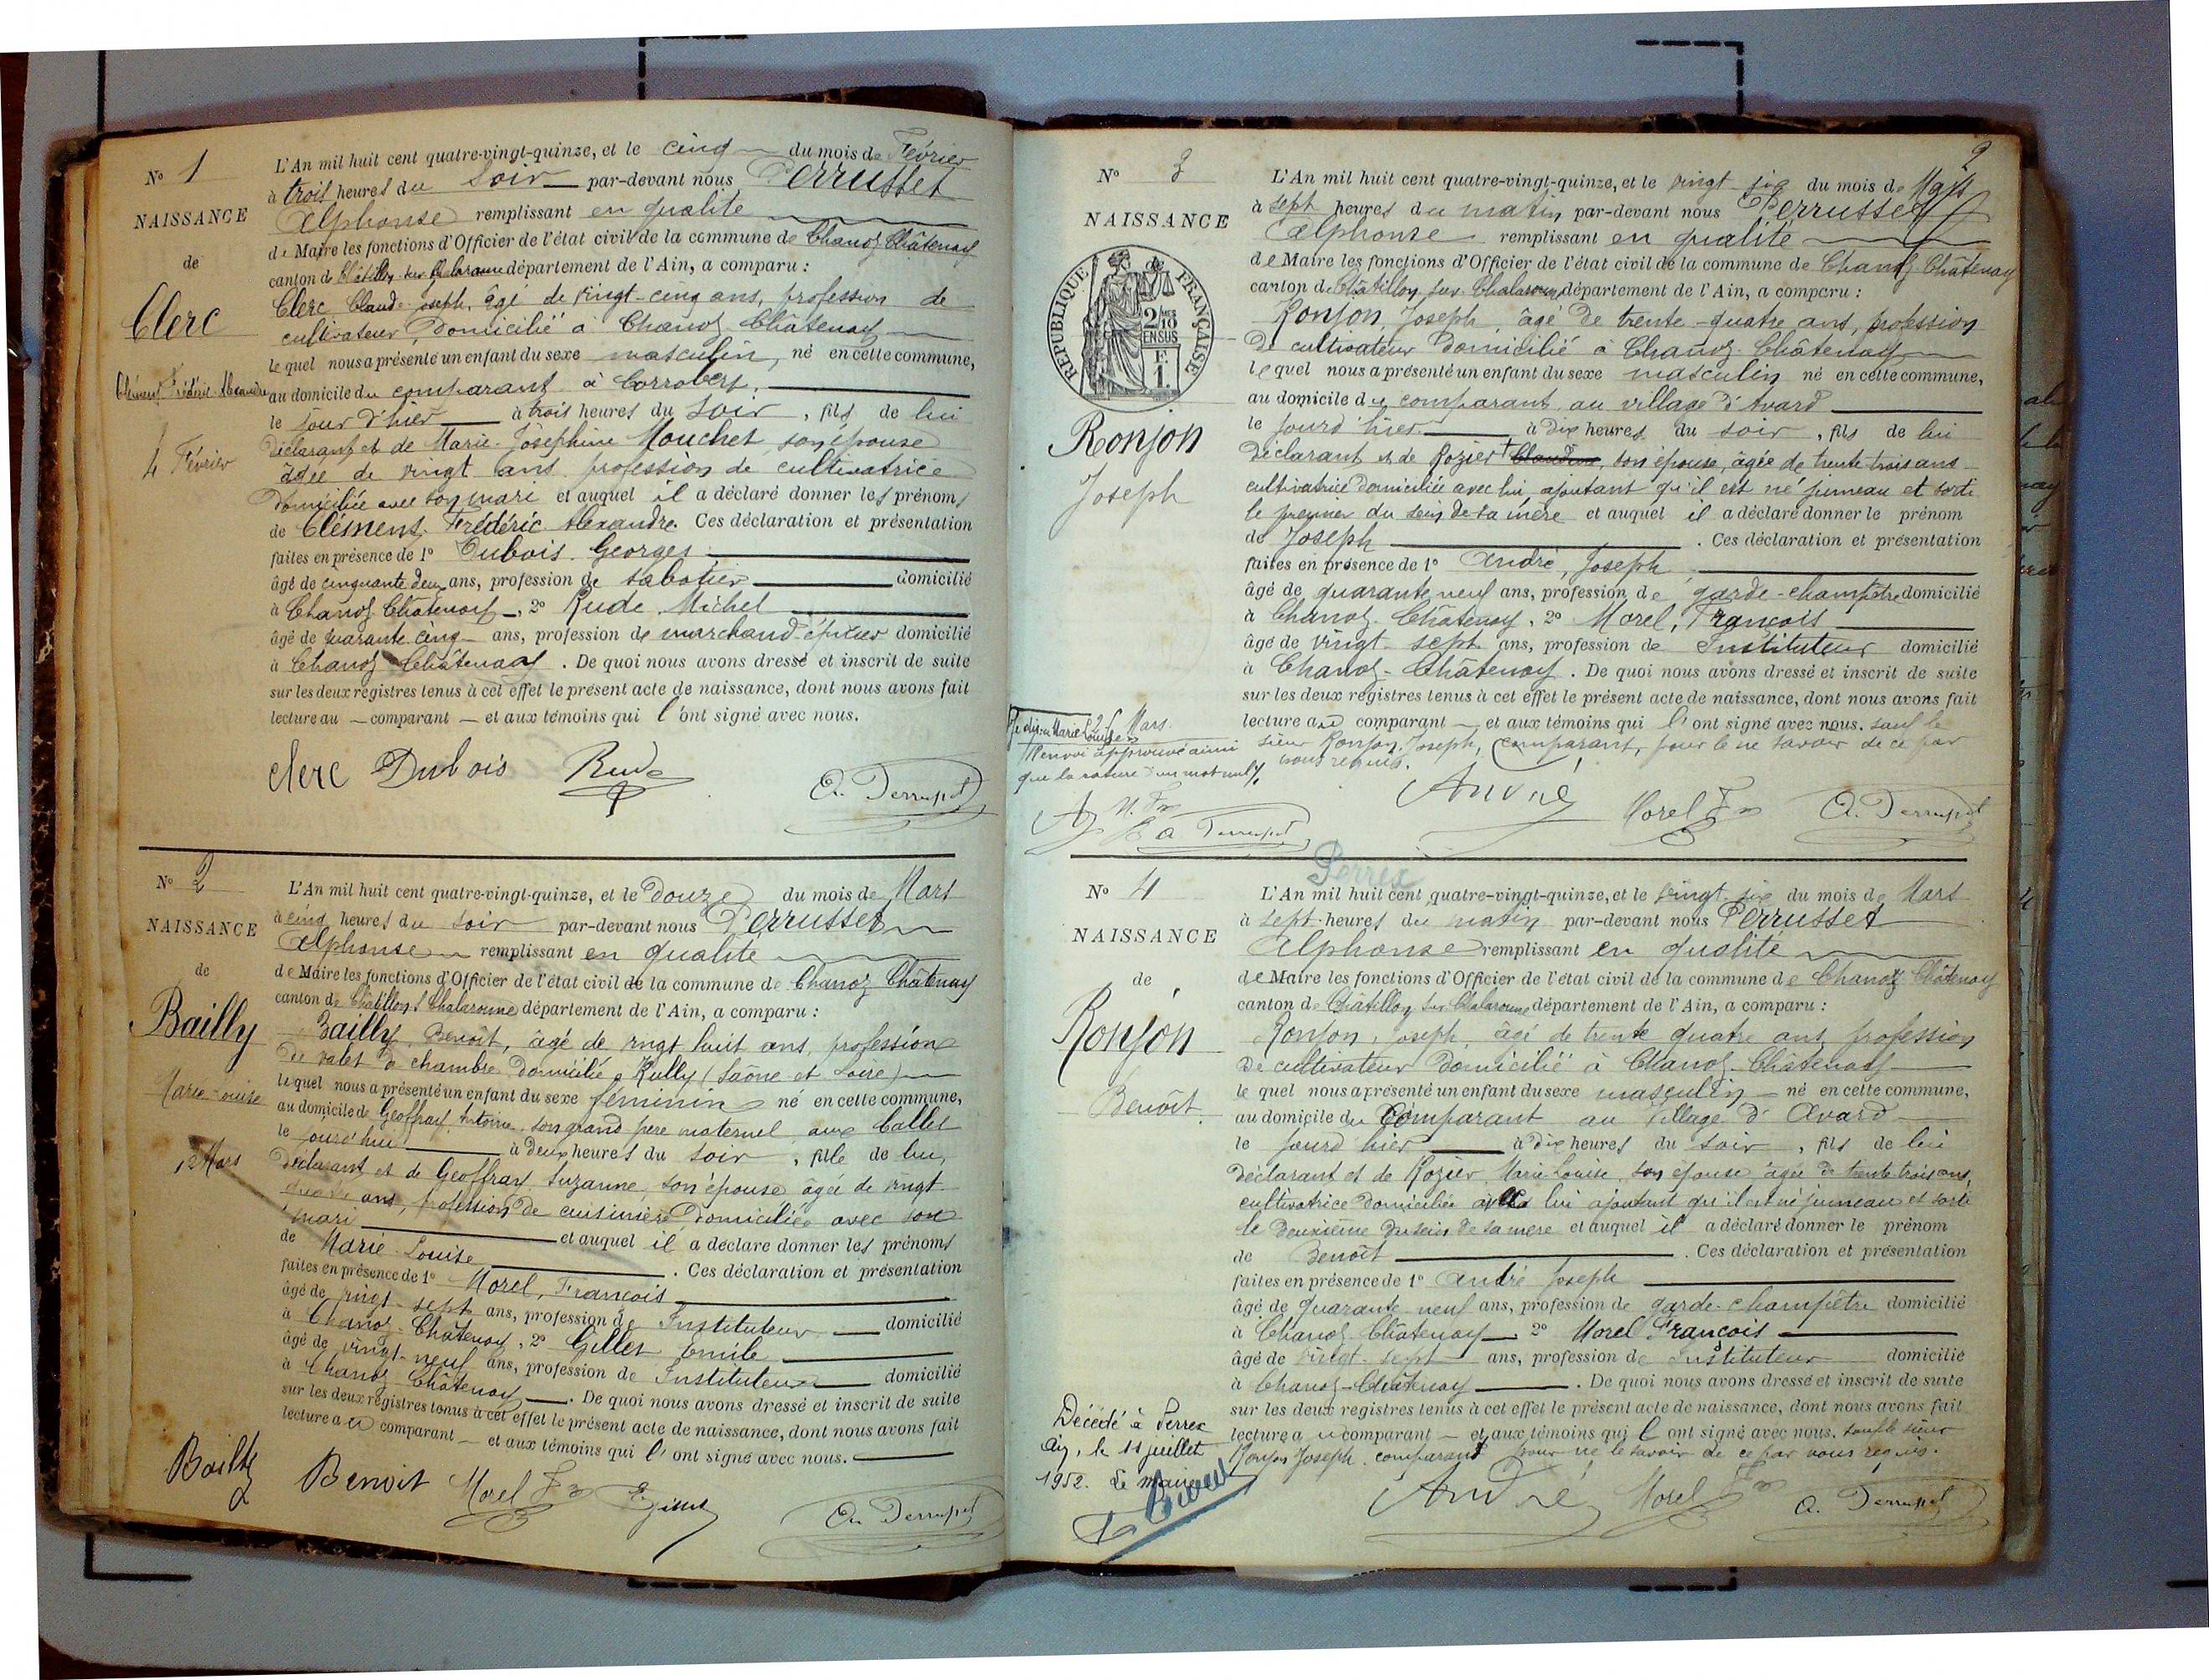 N° 1
NAISSANCE
de
Clerc
Clément Frédéric Alexandre
4 Février
L'An mil huit cent quatre-vingt-quinze, et le cinq du mois de Février
à trois heures du soir par-devant nous Perrusset
Alphonse remplissant en qualité
de Maire les fonctions d'Officier de l'état civil de la commune de Chanoz Châtenay
canton de Châtillon sur Chalaronne département de l'Ain, a comparu :
Clerc Claude Joseph, âgé de vingt-cinq ans, profession de
cultivateur, domicilié à Chanoz Châtenay
lequel nous a présenté un enfant du sexe masculin, né en cette commune,
au domicile du comparant à Corrobert,
le jour d'hier à trois heures du soir, fils de lui
déclarant et de Marie-Joséphine Mouchet son épouse
âgée de vingt ans profession de cultivatrice
domiciliée avec son mari et auquel il a déclaré donner les prénoms
de Clément, Frédéric Alexandre. Ces déclaration et présentation
faites en présence de 1° Dubois Georges,
âgé de cinquante deux ans, profession de sabotier domicilié
à Chanoz Châtenay, 2° Rude Michel
âgé de quarante cinq ans, profession de marchand-épicier domicilié
à Chanoz Châtenay. De quoi nous avons dressé et inscrit de suite
sur les deux registres tenus à cet effet le présent acte de naissance, dont nous avons fait
lecture au comparant et aux témoins qui l'ont signé avec nous.
clerc Dubois Rude A. Perrusset
N° 2
NAISSANCE
de
Bailly
Marie-Louise
12 Mars
L'An mil huit cent quatre-vingt-quinze, et le douze du mois de Mars
à cinq heures du soir par-devant nous Perrusset
Alphonse remplissant en qualité
de Maire les fonctions d'Officier de l'état civil de la commune de Chanoz Châtenay
canton de Châtillon s Chalaronne département de l'Ain, a comparu :
Bailly, Benoît, âgé de vingt huit ans, profession
de valet de chambre domicilié à Rully (Saône et Loire)
lequel nous a présenté un enfant du sexe féminin né en cette commune,
au domicile de Geoffray Antoine son grand père maternel aux Callet
le jourd'hui à deux heures du soir, fille de lui,
déclarant et de Geoffray Suzanne, son épouse âgée de vingt
quatre ans, profession de cuisinière domiciliée avec son
mari et auquel il a déclaré donner les prénoms
de Marie-Louise. Ces déclaration et présentation
faites en présence de 1° Morel, François
âgé de vingt-sept ans, profession de Instituteur domicilié
à Chanoz-Châtenay, 2° Gillet Emile
âgé de vingt-neuf ans, profession de Instituteur domicilié
à Chanoz Châtenay. De quoi nous avons dressé et inscrit de suite
sur les deux registres tenus à cet effet le présent acte de naissance, dont nous avons fait
lecture au comparant et aux témoins qui l'ont signé avec nous.
Bailly Benoit Morel Fs A. Perrusset
2
N° 3
NAISSANCE
REPUBLIQUE FRANÇAISE
2/10 EN SUS
F. 1.
Ronjon
Joseph
L'An mil huit cent quatre-vingt-quinze, et le vingt-six du mois de Mars
à sept heures du matin par-devant nous Perrusset
Alphonse remplissant en qualité
de Maire les fonctions d'Officier de l'état civil de la commune de Chanoz Châtenay
canton de Châtillon sur Chalaronne département de l'Ain, a comparu :
Ronjon, Joseph, âgé de trente-quatre ans, profession
de cultivateur domicilié à Chanoz-Châtenay
lequel nous a présenté un enfant du sexe masculin né en cette commune,
au domicile du comparant au village d'Avard
le jourd'hier à dix heures du soir, fils de lui
déclarant et de Rozier + Claudine, son épouse, âgée de trente trois ans
cultivatrice domiciliée avec lui, ajoutant qu'il est né jumeau et sorti
le premier du sein de sa mère et auquel il a déclaré donner le prénom
de Joseph. Ces déclaration et présentation
faites en présence de 1° André, Joseph,
âgé de quarante neuf ans, profession de garde-champêtre domicilié
à Chanoz-Châtenay, 2° Morel, François
âgé de vingt-sept ans, profession de Instituteur domicilié
à Chanoz-Châtenay. De quoi nous avons dressé et inscrit de suite
sur les deux registres tenus à cet effet le présent acte de naissance, dont nous avons fait
lecture au comparant et aux témoins qui l'ont signé avec nous. sauf le
sieur Ronjon Joseph, comparant, pour le ne savoir de ce par
nous requis.
Marie Louise 25 Mars
Renvoi approuvé ainsi
que la rature d'un mot nul
M. Fs A. Perrusset
André Morel Fs A. Perrusset
Perrex
N° 4
NAISSANCE
de
Ronjon
Benoit
L'An mil huit cent quatre-vingt-quinze, et le vingt-six du mois de Mars
à sept heures du matin par-devant nous Perrusset
Alphonse remplissant en qualité
de Maire les fonctions d'Officier de l'état civil de la commune de Chanoz Châtenay
canton de Châtillon sur Chalaronne département de l'Ain, a comparu :
Ronjon, Joseph, âgé de trente quatre ans, profession
de cultivateur domicilié à Chanoz-Châtenay
lequel nous a présenté un enfant du sexe masculin né en cette commune,
au domicile du Comparant au village d'Avard
le jourd'hier à dix heures du soir, fils de lui
déclarant et de Rozier, Marie Louise, son épouse âgée de trente trois ans,
cultivatrice domiciliée avec lui ajoutant qu'il est né jumeau et sorti
le deuxième du sein de sa mère et auquel il a déclaré donner le prénom
de Benoît. Ces déclaration et présentation
faites en présence de 1° André Joseph
âgé de quarante-neuf ans, profession de garde-champêtre domicilié
à Chanoz Châtenay 2° Morel François
âgé de vingt-sept ans, profession de Instituteur domicilié
à Chanoz-Châtenay. De quoi nous avons dressé et inscrit de suite
sur les deux registres tenus à cet effet le présent acte de naissance, dont nous avons fait
lecture au comparant et aux témoins qui l'ont signé avec nous. sauf le sieur
Ronjon Joseph, comparant pour ne le savoir de ce par nous requis.
Décédé à Perrex
Ain, le 11 juillet
1952. Le maire
André Morel Fs A. Perrusset